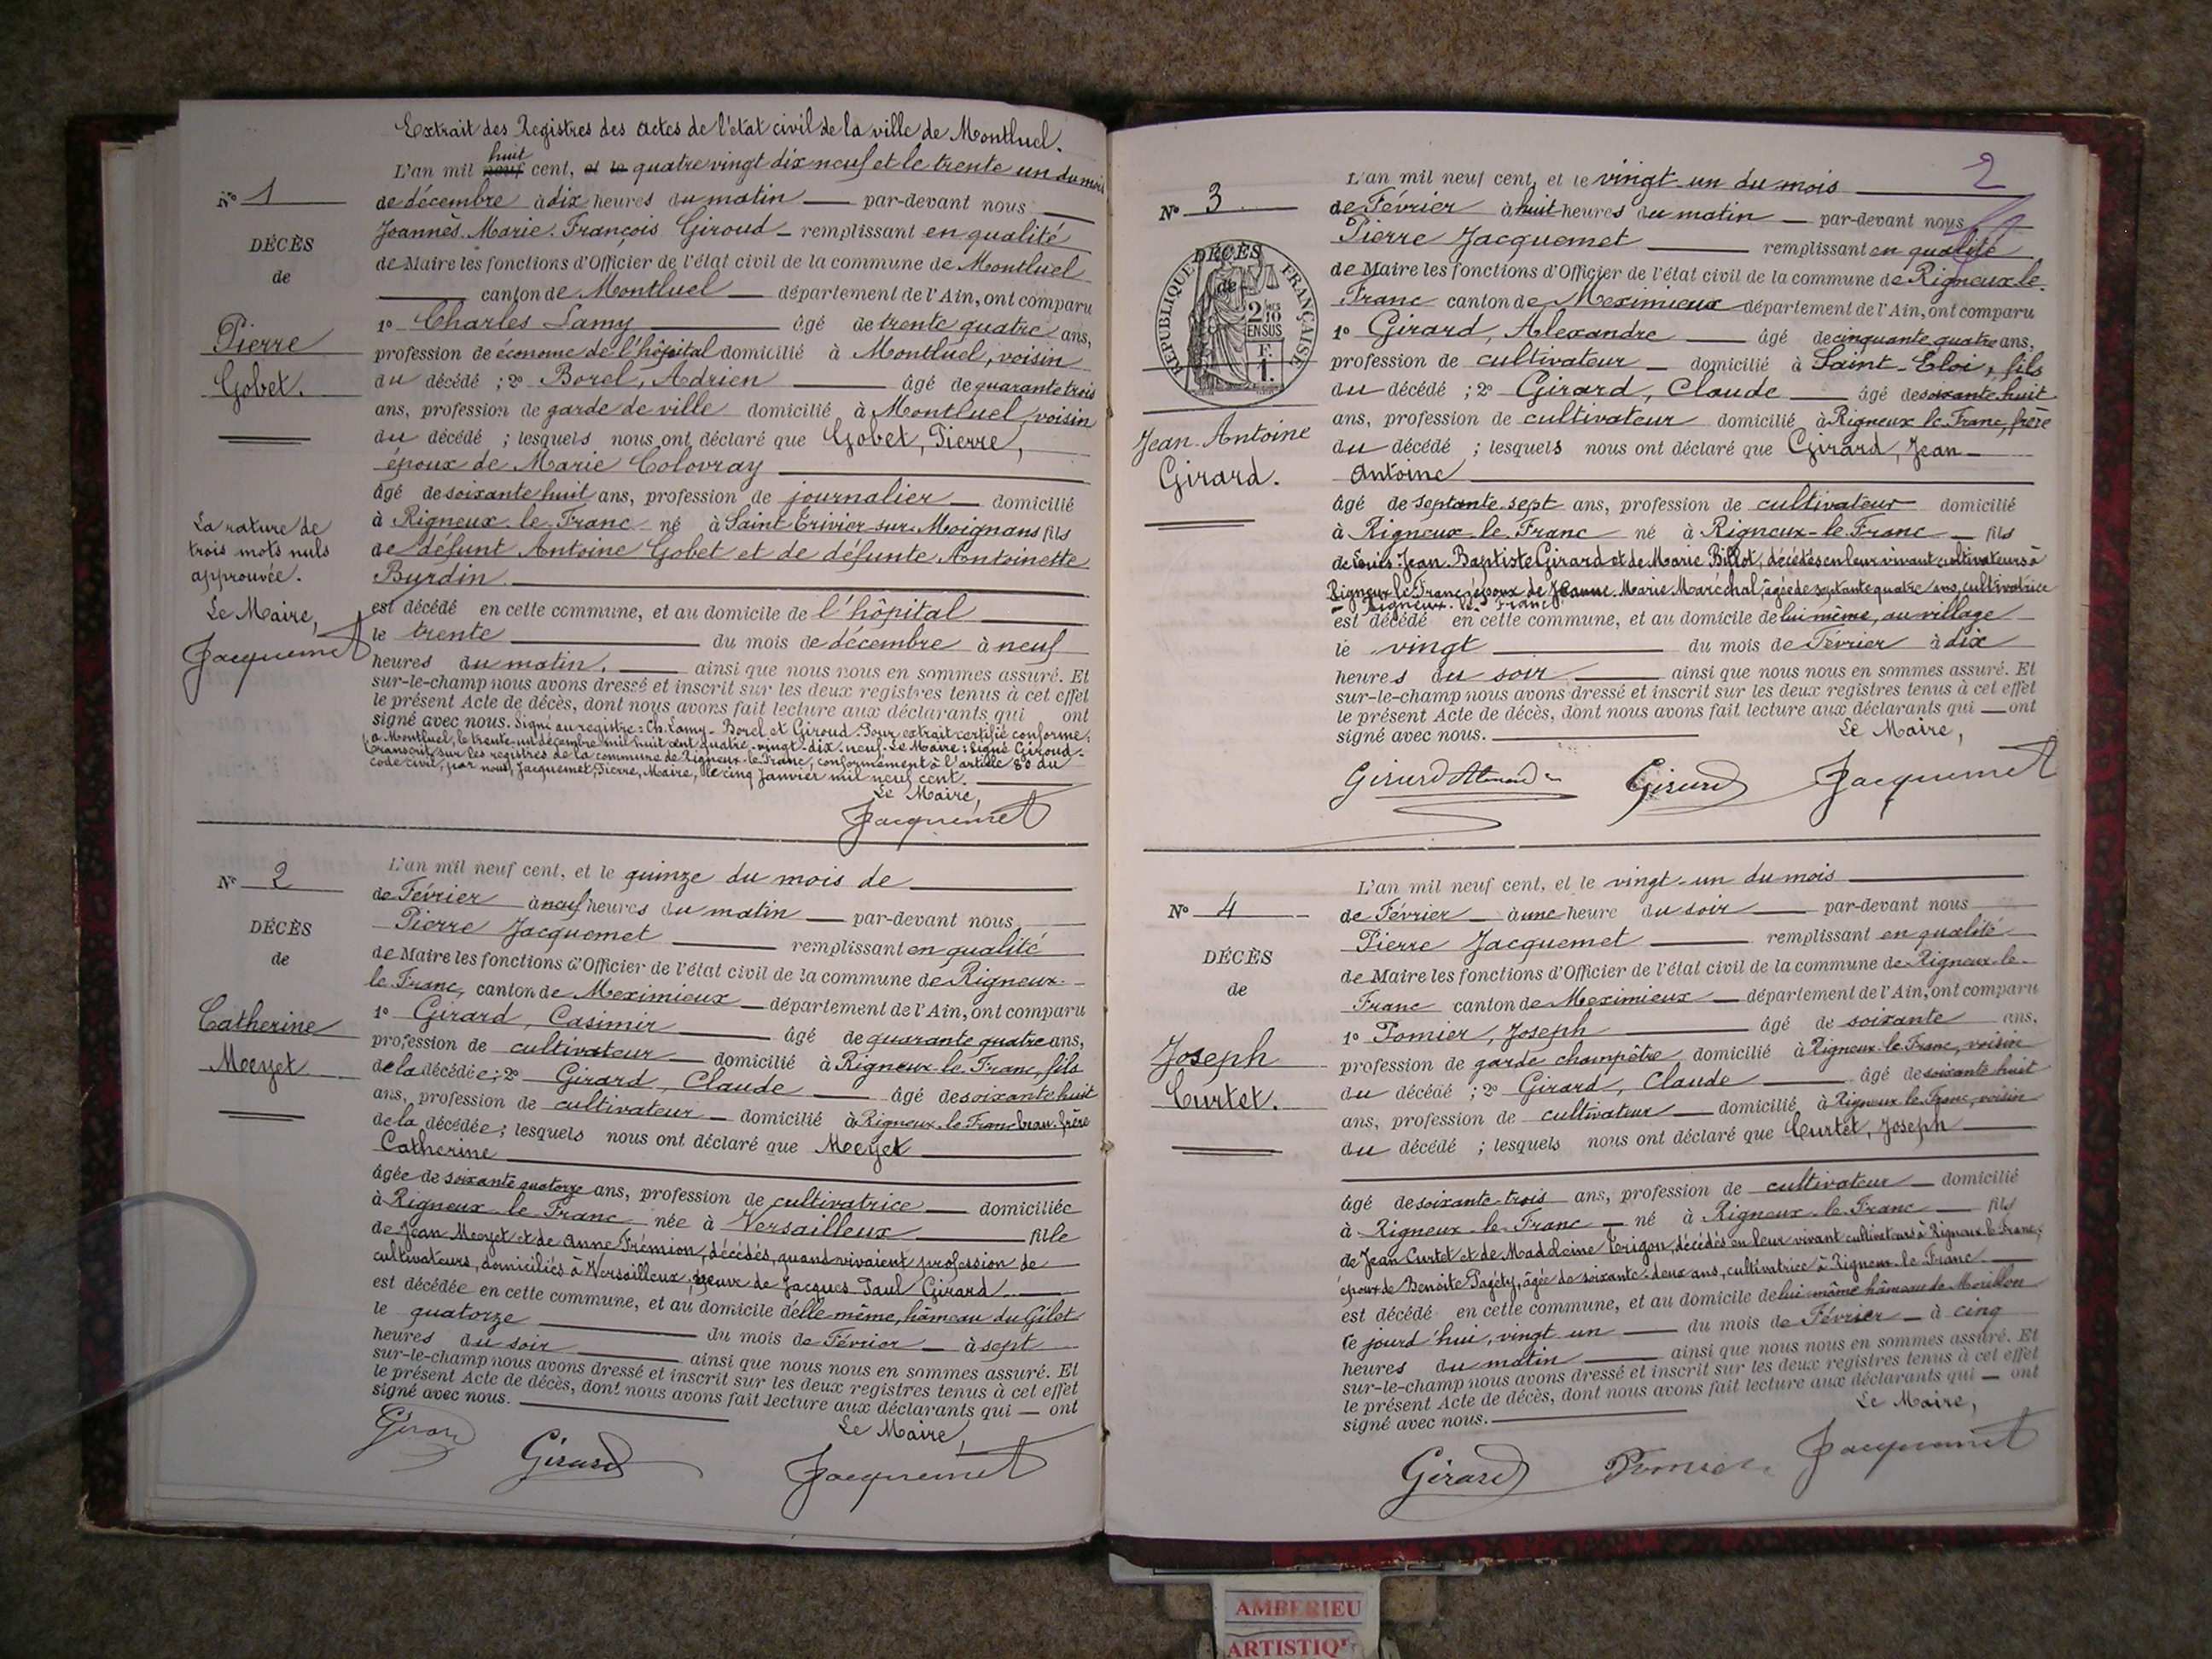 Extrait des Registres des actes de l'état civil de la ville de Montluel.
huit
L'an mil neuf cent, et le quatre vingt dix neuf et le trente un du mois
N° 1
de décembre à dix heures du matin par-devant nous
Joannès Marie François Giroud remplissant en qualité
DÉCÈS
de Maire les fonctions d'Officier de l'état civil de la commune de Montluel
de
canton de Montluel département de l'Ain, ont comparu
1° Charles Lamy âgé de trente quatre ans,
Pierre
profession de économe de l'hôpital domicilié à Montluel, voisin
Gobet.
du décédé ; 2° Borel, Adrien âgé de quarante trois
ans, profession de garde de ville domicilié à Montluel, voisin
du décédé ; lesquels nous ont déclaré que Gobet, Pierre,
époux de Marie Colovray
âgé de soixante huit ans, profession de journalier domicilié
La rature de
à Rigneux-le-Franc né à Saint Trivier-sur-Moignans fils
trois mots nuls
de défunt Antoine Gobet et de défunte Antoinette
approuvée.
Burdin
Le Maire,
est décédé en cette commune, et au domicile de l'hôpital
Jacquemet
le trente du mois de décembre à neuf
heures du matin. ainsi que nous nous en sommes assuré. Et
sur-le-champ nous avons dressé et inscrit sur les deux registres tenus à cet effet
le présent Acte de décès, dont nous avons fait lecture aux déclarants qui ont
signé avec nous. Signé au registre : Ch. Lamy - Borel et Giroud. Pour extrait certifié conforme.
à Montluel, le trente-un décembre mil huit cent quatre-vingt-dix-neuf. Le Maire : Signé Giroud.
Transcrit sur les registres de la commune de Rigneux-le-Franc, conformément à l'article 80 du
code civil, par nous, Jacquemet, Pierre, Maire, le cinq Janvier mil neuf cent.
Le Maire,
Jacquemet
N° 2
L'an mil neuf cent, et le quinze du mois de
de Février à neuf heures du matin par-devant nous
DÉCÈS
Pierre Jacquemet remplissant en qualité
de
de Maire les fonctions d'Officier de l'état civil de la commune de Rigneux-
le-Franc, canton de Meximieux département de l'Ain, ont comparu
Catherine
1° Girard, Casimir âgé de quarante quatre ans,
Meeyet
profession de cultivateur domicilié à Rigneux-le-Franc, fils
de la décédée ; 2° Girard, Claude âgé de soixante huit
ans, profession de cultivateur domicilié à Rigneux-le-Franc beau-frère
de la décédée ; lesquels nous ont déclaré que Meeyet
Catherine
âgée de soixante quatorze ans, profession de cultivatrice domiciliée
à Rigneux-le-Franc née à Versailleux fille
de Jean Meeyet et de Anne Frémion, décédés, quand vivaient profession de
cultivateurs, domiciliés à Versailleux, veuve de Jacques Paul Girard
est décédée en cette commune, et au domicile d'elle même, hameau du Gilet
le quatorze du mois de Février à sept
heures du soir ainsi que nous nous en sommes assuré. Et
sur-le-champ nous avons dressé et inscrit sur les deux registres tenus à cet effet
le présent Acte de décès, dont nous avons fait lecture aux déclarants qui ont
signé avec nous.
Le Maire,
Girard Girard Jacquemet
2
N° 3
L'an mil neuf cent, et le vingt-un du mois
de Février à huit heures du matin par-devant nous
Pierre Jacquemet remplissant en qualité
DÉCÈS
de
RÉPUBLIQUE FRANÇAISE
2/10
EN SUS
F.
1.
de Maire les fonctions d'Officier de l'état civil de la commune de Rigneux-le-
Franc canton de Meximieux département de l'Ain, ont comparu
1° Girard, Alexandre âgé de cinquante quatre ans,
profession de cultivateur domicilié à Saint-Eloi, fils
du décédé ; 2° Girard, Claude âgé de soixante huit
Jean-Antoine
Girard.
ans, profession de cultivateur domicilié à Rigneux-le-Franc, frère
du décédé ; lesquels nous ont déclaré que Girard, Jean-
Antoine
âgé de septante-sept ans, profession de cultivateur domicilié
à Rigneux-le-Franc né à Rigneux-le-Franc fils
de Jean-Baptiste Girard et de Marie Billot, décédés en leur vivant cultivateurs à
Rigneux-le-Franc, époux de Jeanne-Marie Maréchal, âgée de septante quatre ans, cultivatrice
Rigneux-le-Franc
est décédé en cette commune, et au domicile de lui même, au village
le vingt du mois de Février à dix
heures du soir ainsi que nous nous en sommes assuré. Et
sur-le-champ nous avons dressé et inscrit sur les deux registres tenus à cet effet
le présent Acte de décès, dont nous avons fait lecture aux déclarants qui ont
signé avec nous.
Le Maire,
Girard Girard Jacquemet
N° 4
L'an mil neuf cent, et le vingt-un du mois
de Février à une heure du soir par-devant nous
Pierre Jacquemet remplissant en qualité
DÉCÈS
de
de Maire les fonctions d'Officier de l'état civil de la commune de Rigneux-le-
Franc canton de Meximieux département de l'Ain, ont comparu
1° Pomier, Joseph âgé de soixante ans,
Joseph
Curtet.
profession de garde champêtre domicilié à Rigneux-le-Franc, voisin
du décédé ; 2° Girard, Claude âgé de soixante huit
ans, profession de cultivateur domicilié à Rigneux-le-Franc, voisin
du décédé ; lesquels nous ont déclaré que Curtet, Joseph
âgé de soixante-trois ans, profession de cultivateur domicilié
à Rigneux-le-Franc né à Rigneux-le-Franc fils
de Jean Curtet et de Madeleine Trigon, décédés en leur vivant cultivateurs à Rigneux-le-Franc,
époux de Benoîte Pagéty, âgée de soixante-deux ans, cultivatrice à Rigneux-le-Franc
est décédé en cette commune, et au domicile de lui même hameau de Morillon
ce jourd'hui, vingt un du mois de Février à cinq
heures du matin ainsi que nous nous en sommes assuré. Et
sur-le-champ nous avons dressé et inscrit sur les deux registres tenus à cet effet
le présent Acte de décès, dont nous avons fait lecture aux déclarants qui ont
signé avec nous.
Le Maire,
Girard Pomier Jacquemet
AMBERIEU
ARTISTIQ